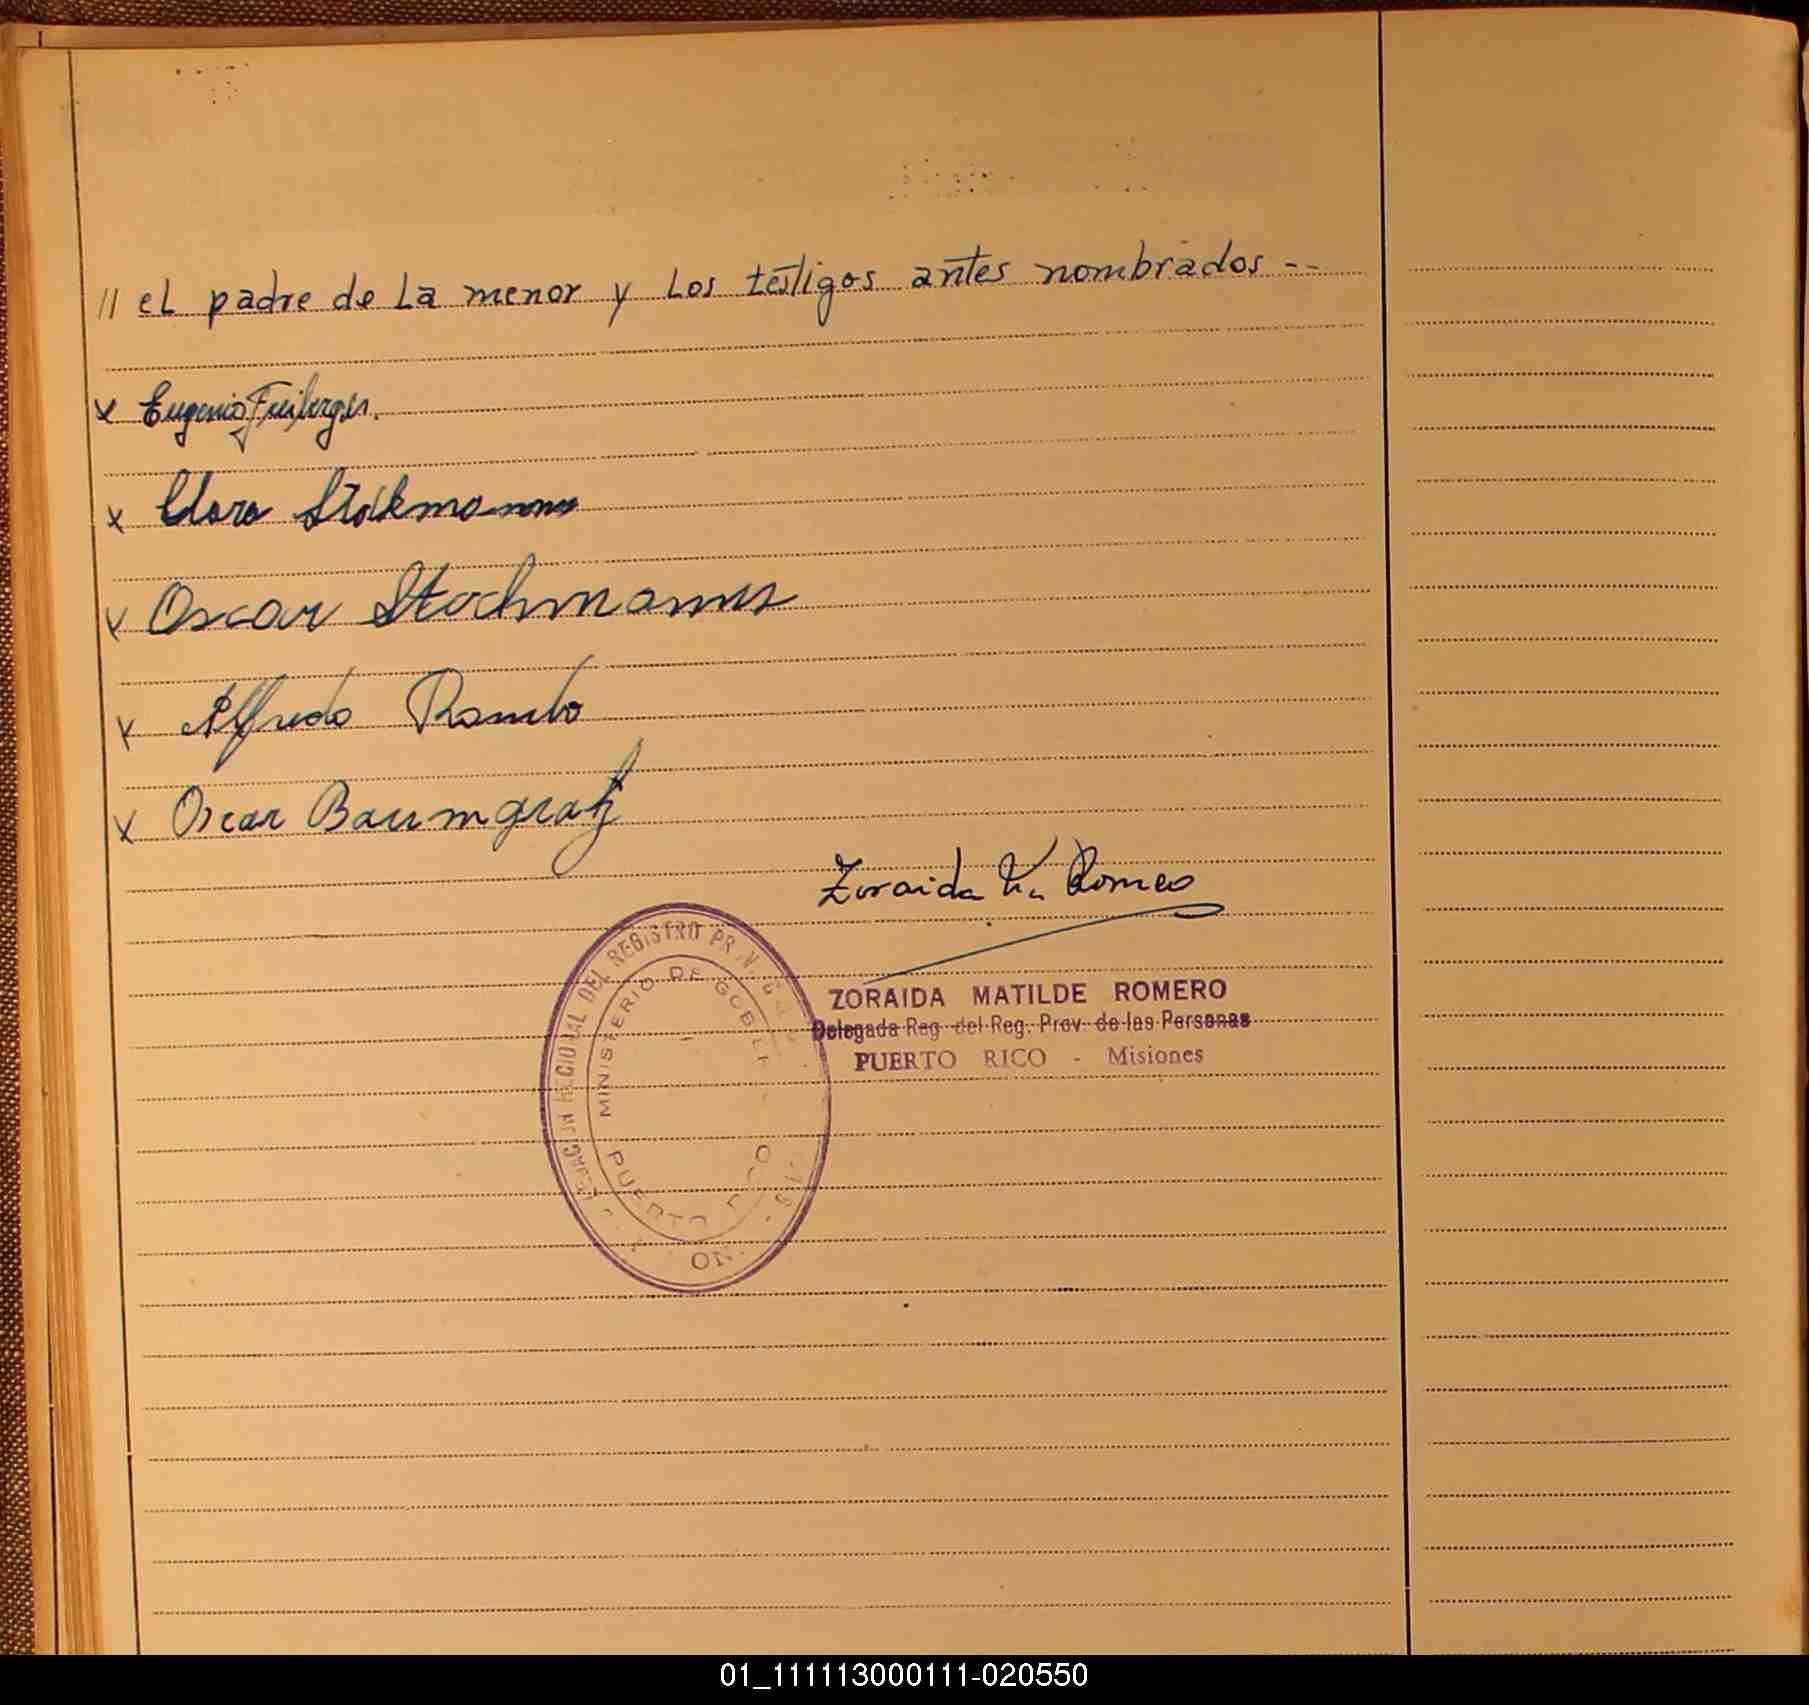 // el padre de la menor y los testigos antes nombrados --
x Eugenio Freiberger.
x Clara Stokmanns
x Oscar Stockmanns
x Alfredo Rambo
x Oscar Baumgratz
Zoraida M. Romero
DEL REGISTRO
MINISTERIO DE
PUERTO
ZORAIDA MATILDE ROMERO
Delegada Reg. del Reg. Prov. de las Personas
PUERTO RICO - Misiones
01_111113000111-020550